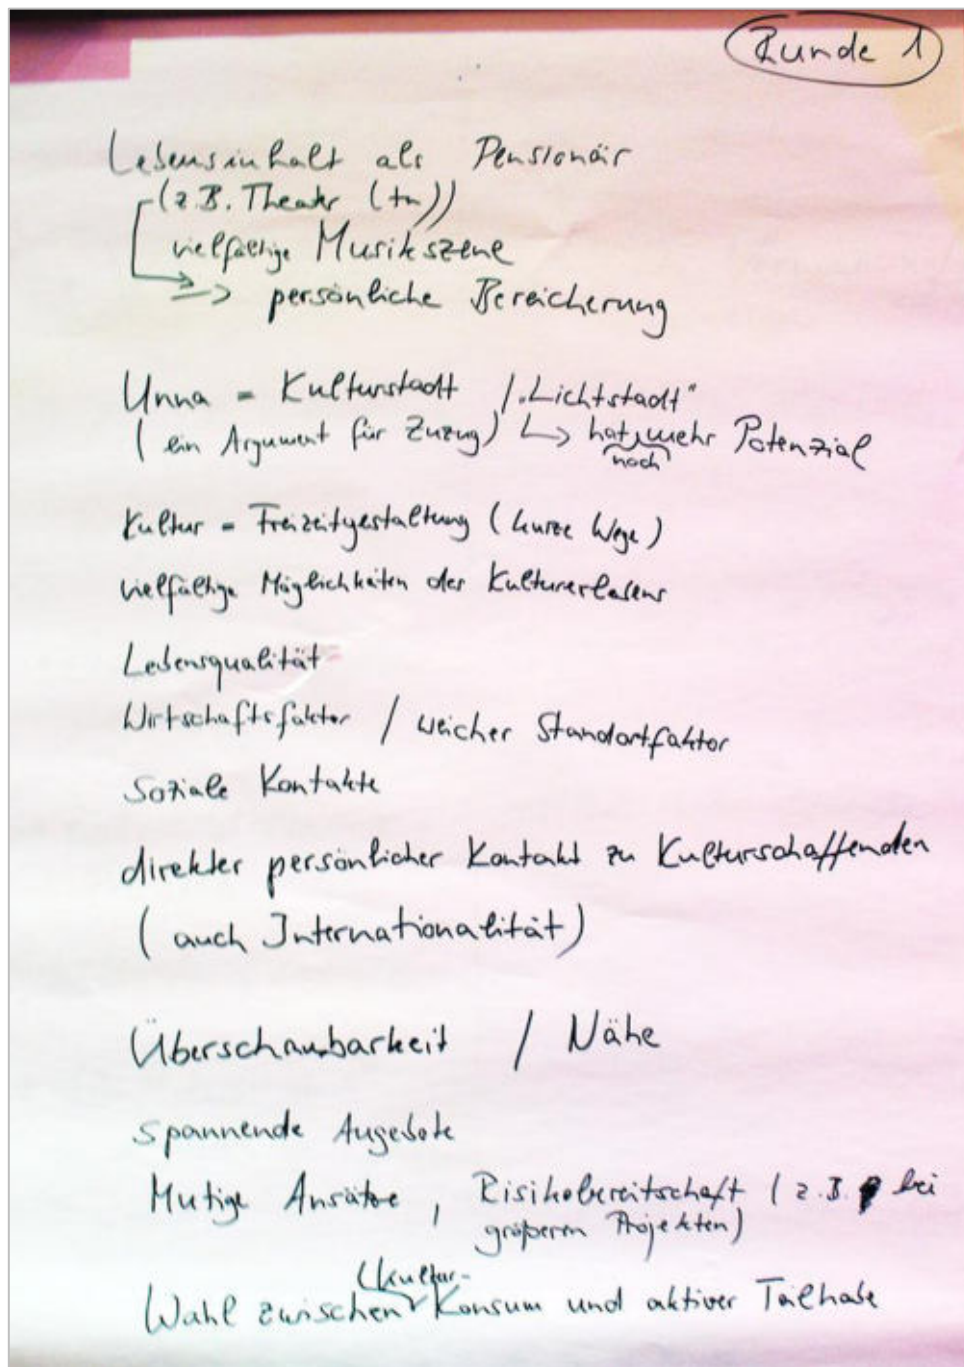 Runde 1
Lebensinhalt als Pensionär
(z.B. Theater (tn))
vielfältige Musikszene
=> persönliche Bereicherung
Unna = Kulturstadt / "Lichtstadt"
(ein Argument für Zuzug) ↳ hat noch mehr Potenzial
Kultur = Freizeitgestaltung (kurze Wege)
vielfältige Möglichkeiten des Kulturerlebens
Lebensqualität
Wirtschaftsfaktor / weicher Standortfaktor
Soziale Kontakte
direkter persönlicher Kontakt zu Kulturschaffenden
(auch Internationalität)
Überschaubarkeit / Nähe
spannende Angebote
Mutige Ansätze, Risikobereitschaft (z.B. bei
größeren Projekten)
Wahl zwischen (Kultur-Konsum und aktiver Teilhabe